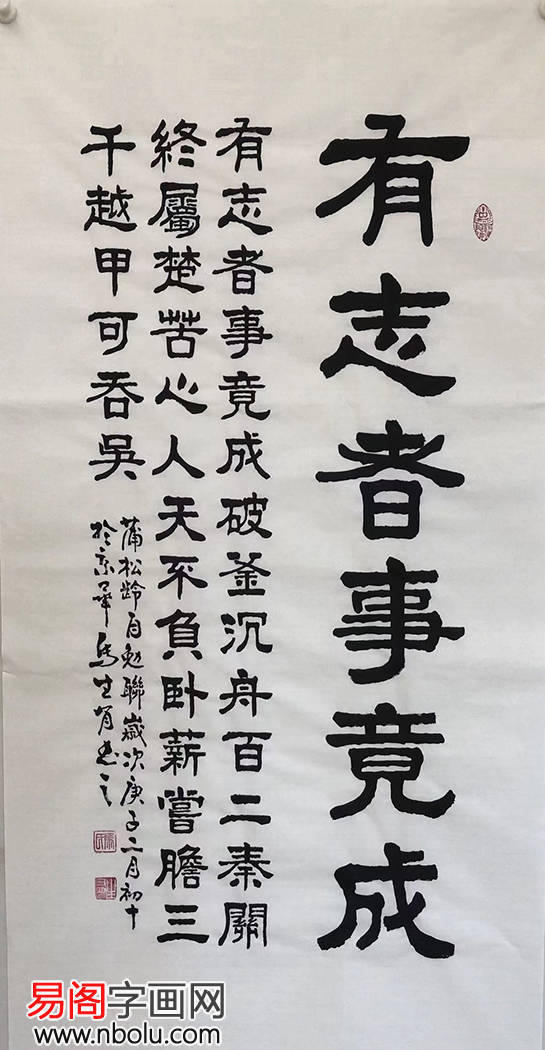 有志者事竟成
有志者事竟成破釜沉舟百二秦關
終屬楚苦心人天不負卧薪嘗膽三
千越甲可吞吳
蒲松齡自勉聯歲次庚子二月初十
於京華馬生
易阁字画网
www.nbolu.com